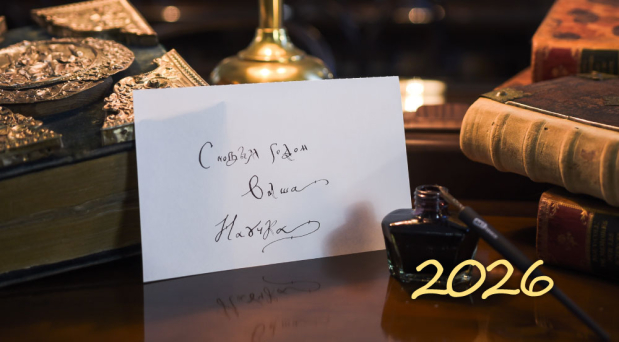 С новым годом
Ваша
Наука
2026